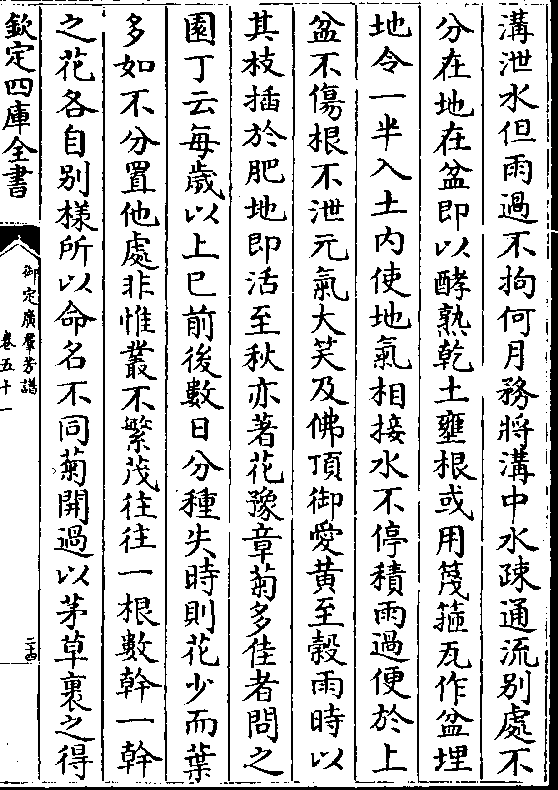 溝泄水但雨過不拘何月務將溝中水疎通流别處不
分在地在盆即以酵熟乾土壅根或用篾箍瓦作盆埋
地令一半入土内使地氣相接水不停積雨過便於上
盆不傷根不泄元氣大笑及佛頂御愛黄至穀雨時以
其枝插於肥地即活至秋亦著花豫章菊多佳者問之
園丁云每歲以上巳前後數日分種失時則花少而葉
多如不分置他處非惟叢不繁茂往往一根數幹一幹
之花各自别樣所以命名不同菊開過以茅草裹之得
欽定四庫全書
御定廣羣芳譜
卷五十一
二十四